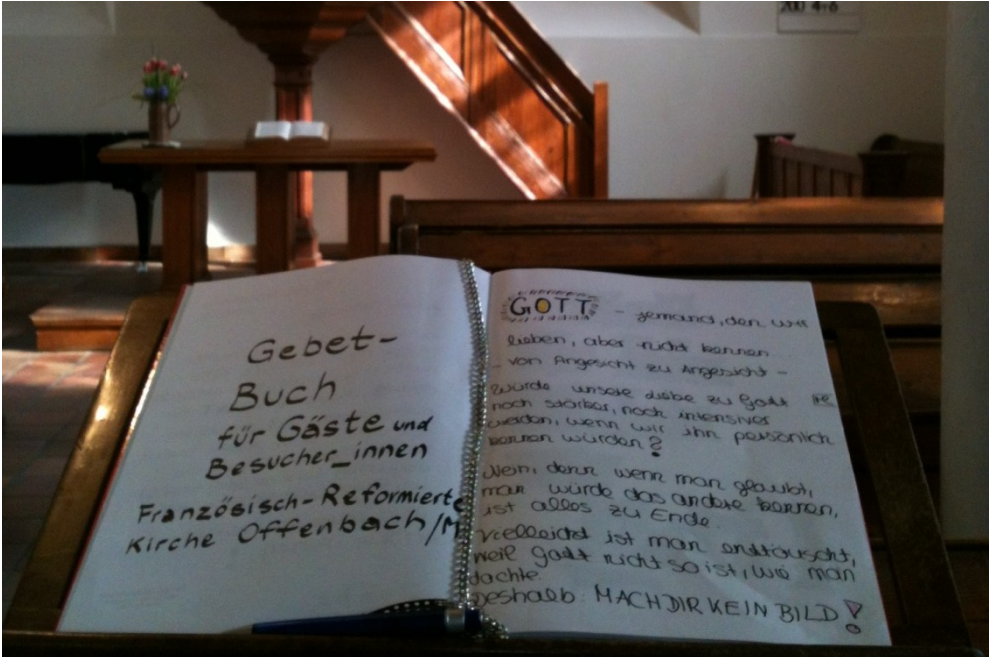 200 4+6
Gebet-
Buch
für Gäste und
Besucher_innen
Französisch-Reformierte
Kirche Offenbach/M
GOTT - jemand, den wir
lieben, aber nicht kennen
- von Angesicht zu Angesicht -
würde unsere Liebe zu Gott
noch stärker, noch intensiver
werden, wenn wir ihn persönlich
kennen würden?
Nein, denn wenn man glaubt,
man würde das andere kennen,
ist alles zu Ende.
Vielleicht ist man enttäuscht,
weil Gott nicht so ist, wie man
dachte.
Deshalb: MACH DIR KEIN BILD!